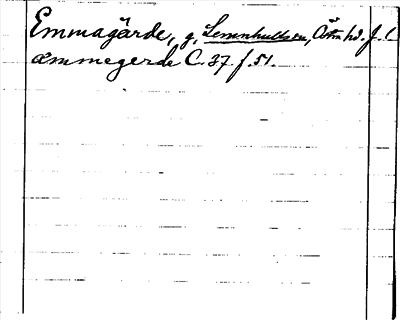 Emmagärde, g, Lemnhults sn, Östra hd. J. l.
æmmegerde C. 37. f. 51.